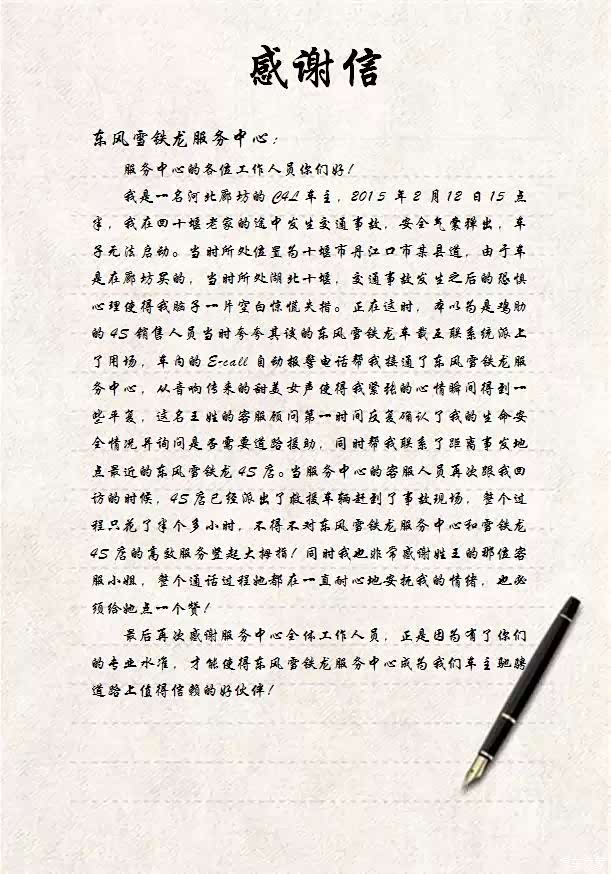 感谢信
东风雪铁龙服务中心：
服务中心的各位工作人员你们好！
我是一名河北廊坊的C4L车主，2015年2月12日15点
半，我在回十堰老家的途中发生交通事故，安全气囊弹出，车
子无法启动。当时所处位置为十堰市丹江口市某县道，由于车
是在廊坊买的，当时所处湖北十堰，交通事故发生之后的恐惧
心理使得我脑子一片空白惊慌失措。正在这时，本以为是鸡肋
的4S销售人员当时夸夸其谈的东风雪铁龙车载互联系统派上
了用场，车内的E-call自动报警电话帮我接通了东风雪铁龙服
务中心，从音响传来的甜美女声使得我紧张的心情瞬间得到一
些平复，这名王姓的客服顾问第一时间反复确认了我的生命安
全情况并询问是否需要道路援助，同时帮我联系了距离事发地
点最近的东风雪铁龙4S店。当服务中心的客服人员再次跟我回
访的时候，4S店已经派出了救援车辆赶到了事故现场，整个过
程只花了半个多小时，不得不对东风雪铁龙服务中心和雪铁龙
4S店的高效服务竖起大拇指！同时我也非常感谢姓王的那位客
服小姐，整个通话过程她都在一直耐心地安抚我的情绪，也必
须给她点一个赞！
最后再次感谢服务中心全体工作人员，正是因为有了你们
的专业水准，才能使得东风雪铁龙服务中心成为我们车主驰骋
道路上值得信赖的好伙伴！